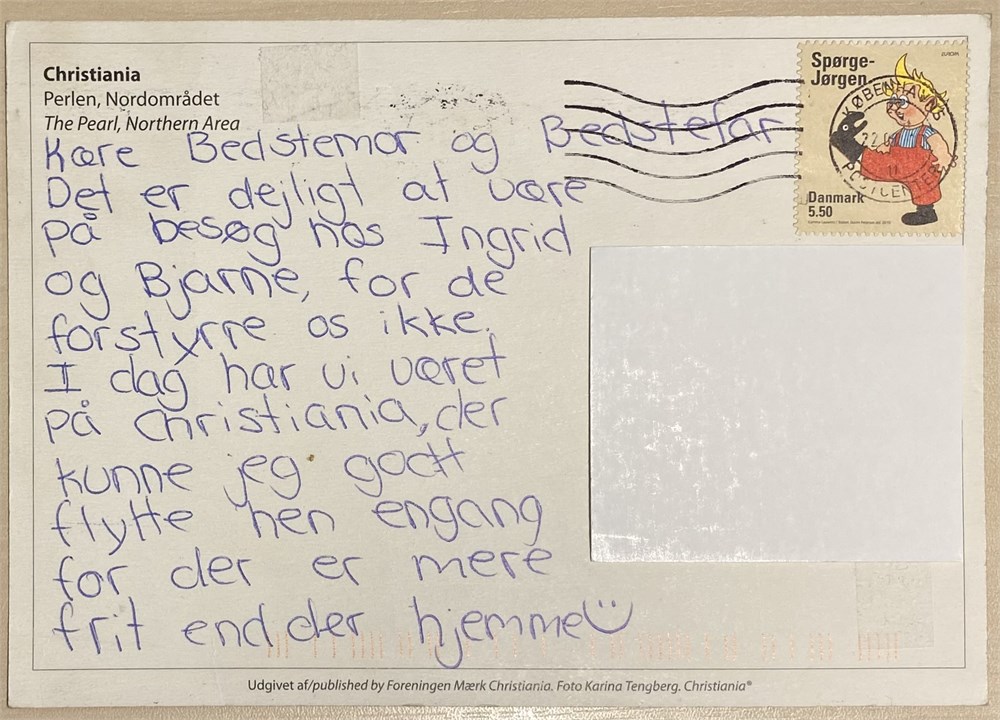 Christiania
Perlen, Nordområdet
The Pearl, Northern Area
Spørge-
Jørgen
EUROPA
KØBENHAVNS
Danmark
5.50
Kære Bedstemor og Bedstefar
Det er dejligt at være
på besøg hos Ingrid
og Bjarne, for de
forstyrre os ikke.
I dag har vi været
på Christiania, der
kunne jeg godt
flytte hen engang
for der er mere
frit end der hjemme
Udgivet af/published by Foreningen Mærk Christiania. Foto Karina Tengberg. Christiania®